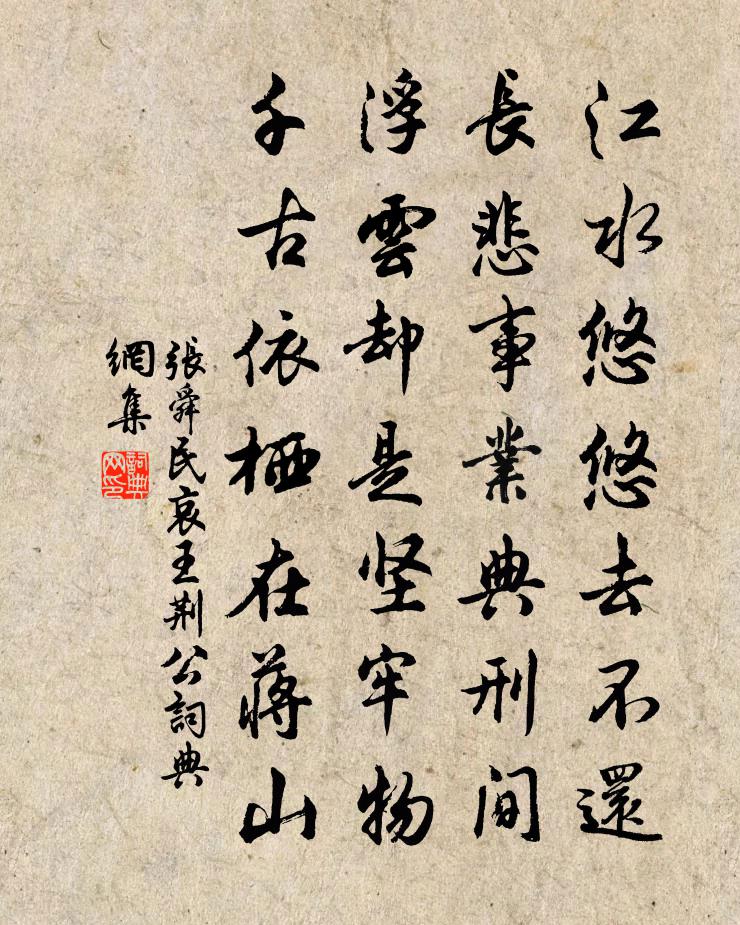 江水悠悠去不還
長悲事業典刑間
浮雲却是坚牢物
千古依栖在蒋山
張舜民哀王荆公詞典
網集
詞典
网印